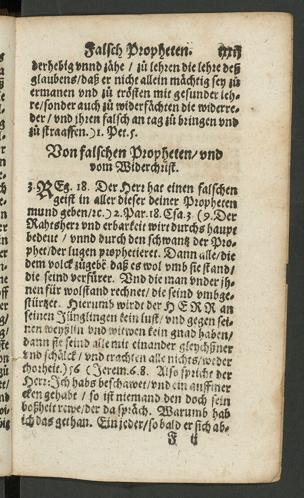 Falsch Propheten.
derhebig vnnd zähe / zů lehren die lehre deß
glaubens / daß er nicht allein mächtig sey zů
ermanen vnd zů trösten mit gesunder leh-
re / sonder auch zů widerfächten die widerre-
der / vnd ihren falsch an tag zů bringen vnd
zů straaffen.) 1. Pet. 5.
Von falschen Propheten / vnd
vom Widerchrist.
3. REg. 18. Der Herr hat einen falschen
geist in aller dieser deiner Propheten
mund geben / rc.) 2. Par. 18. Esa. 3. (9. Der
Rahtsherr vnd erbarkeit wirt durchs haupt
bedeut / vnnd durch den schwantz der Pro-
phet / der lugen prophetieret. Dann alle / die
dem volck zůgebē daß es wol vmb sie stand /
die seind verfürer. Vnd die man vnder jh-
nen für wolstand rechnet / die seind vmbge-
stürtzet. Hierumb wirdt der HERR an
seinen Jünglingen kein lust / vnd gegen sei-
nen weyßlin vnd witwen kein gnad haben /
dann sie seind alle mit einander gleychßner
vnd schälck / vnd trachten alle nichts / weder
thorheit.) 56 (Jerem. 6. 8. Also spricht der
Herr: Ich habs beschawet / vnd ein auffmer
cken gehabt / so ist niemand den doch sein
boßheit rewe / der da spräch. Warumb hab
ich das gethan. Ein jeder / so bald er sich ab-
F ij